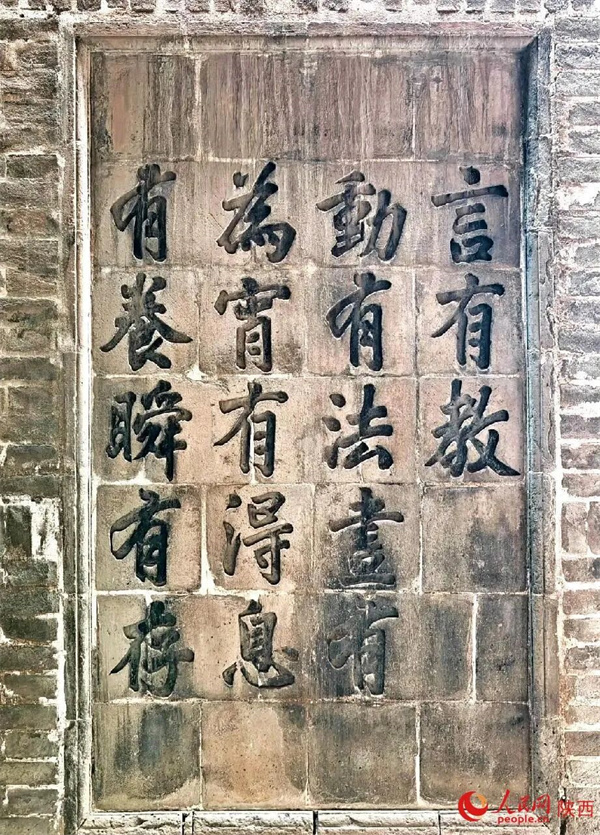 言有教
動有法晝有
為宵有得息
有養瞬有存
人民网 陕西
people.cn